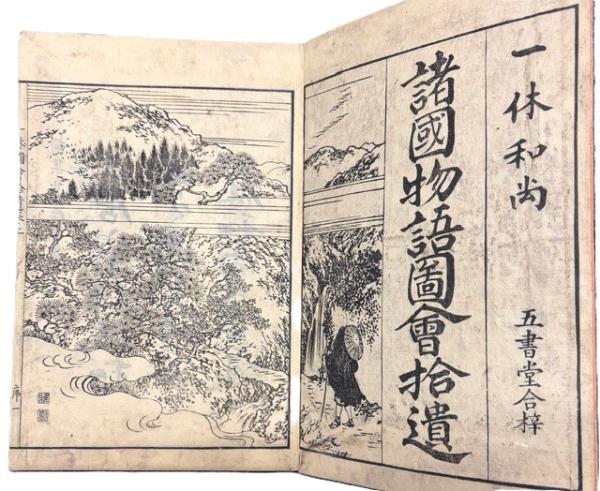 一休和尚
諸國物語圖會拾遺
五書堂合梓
序一